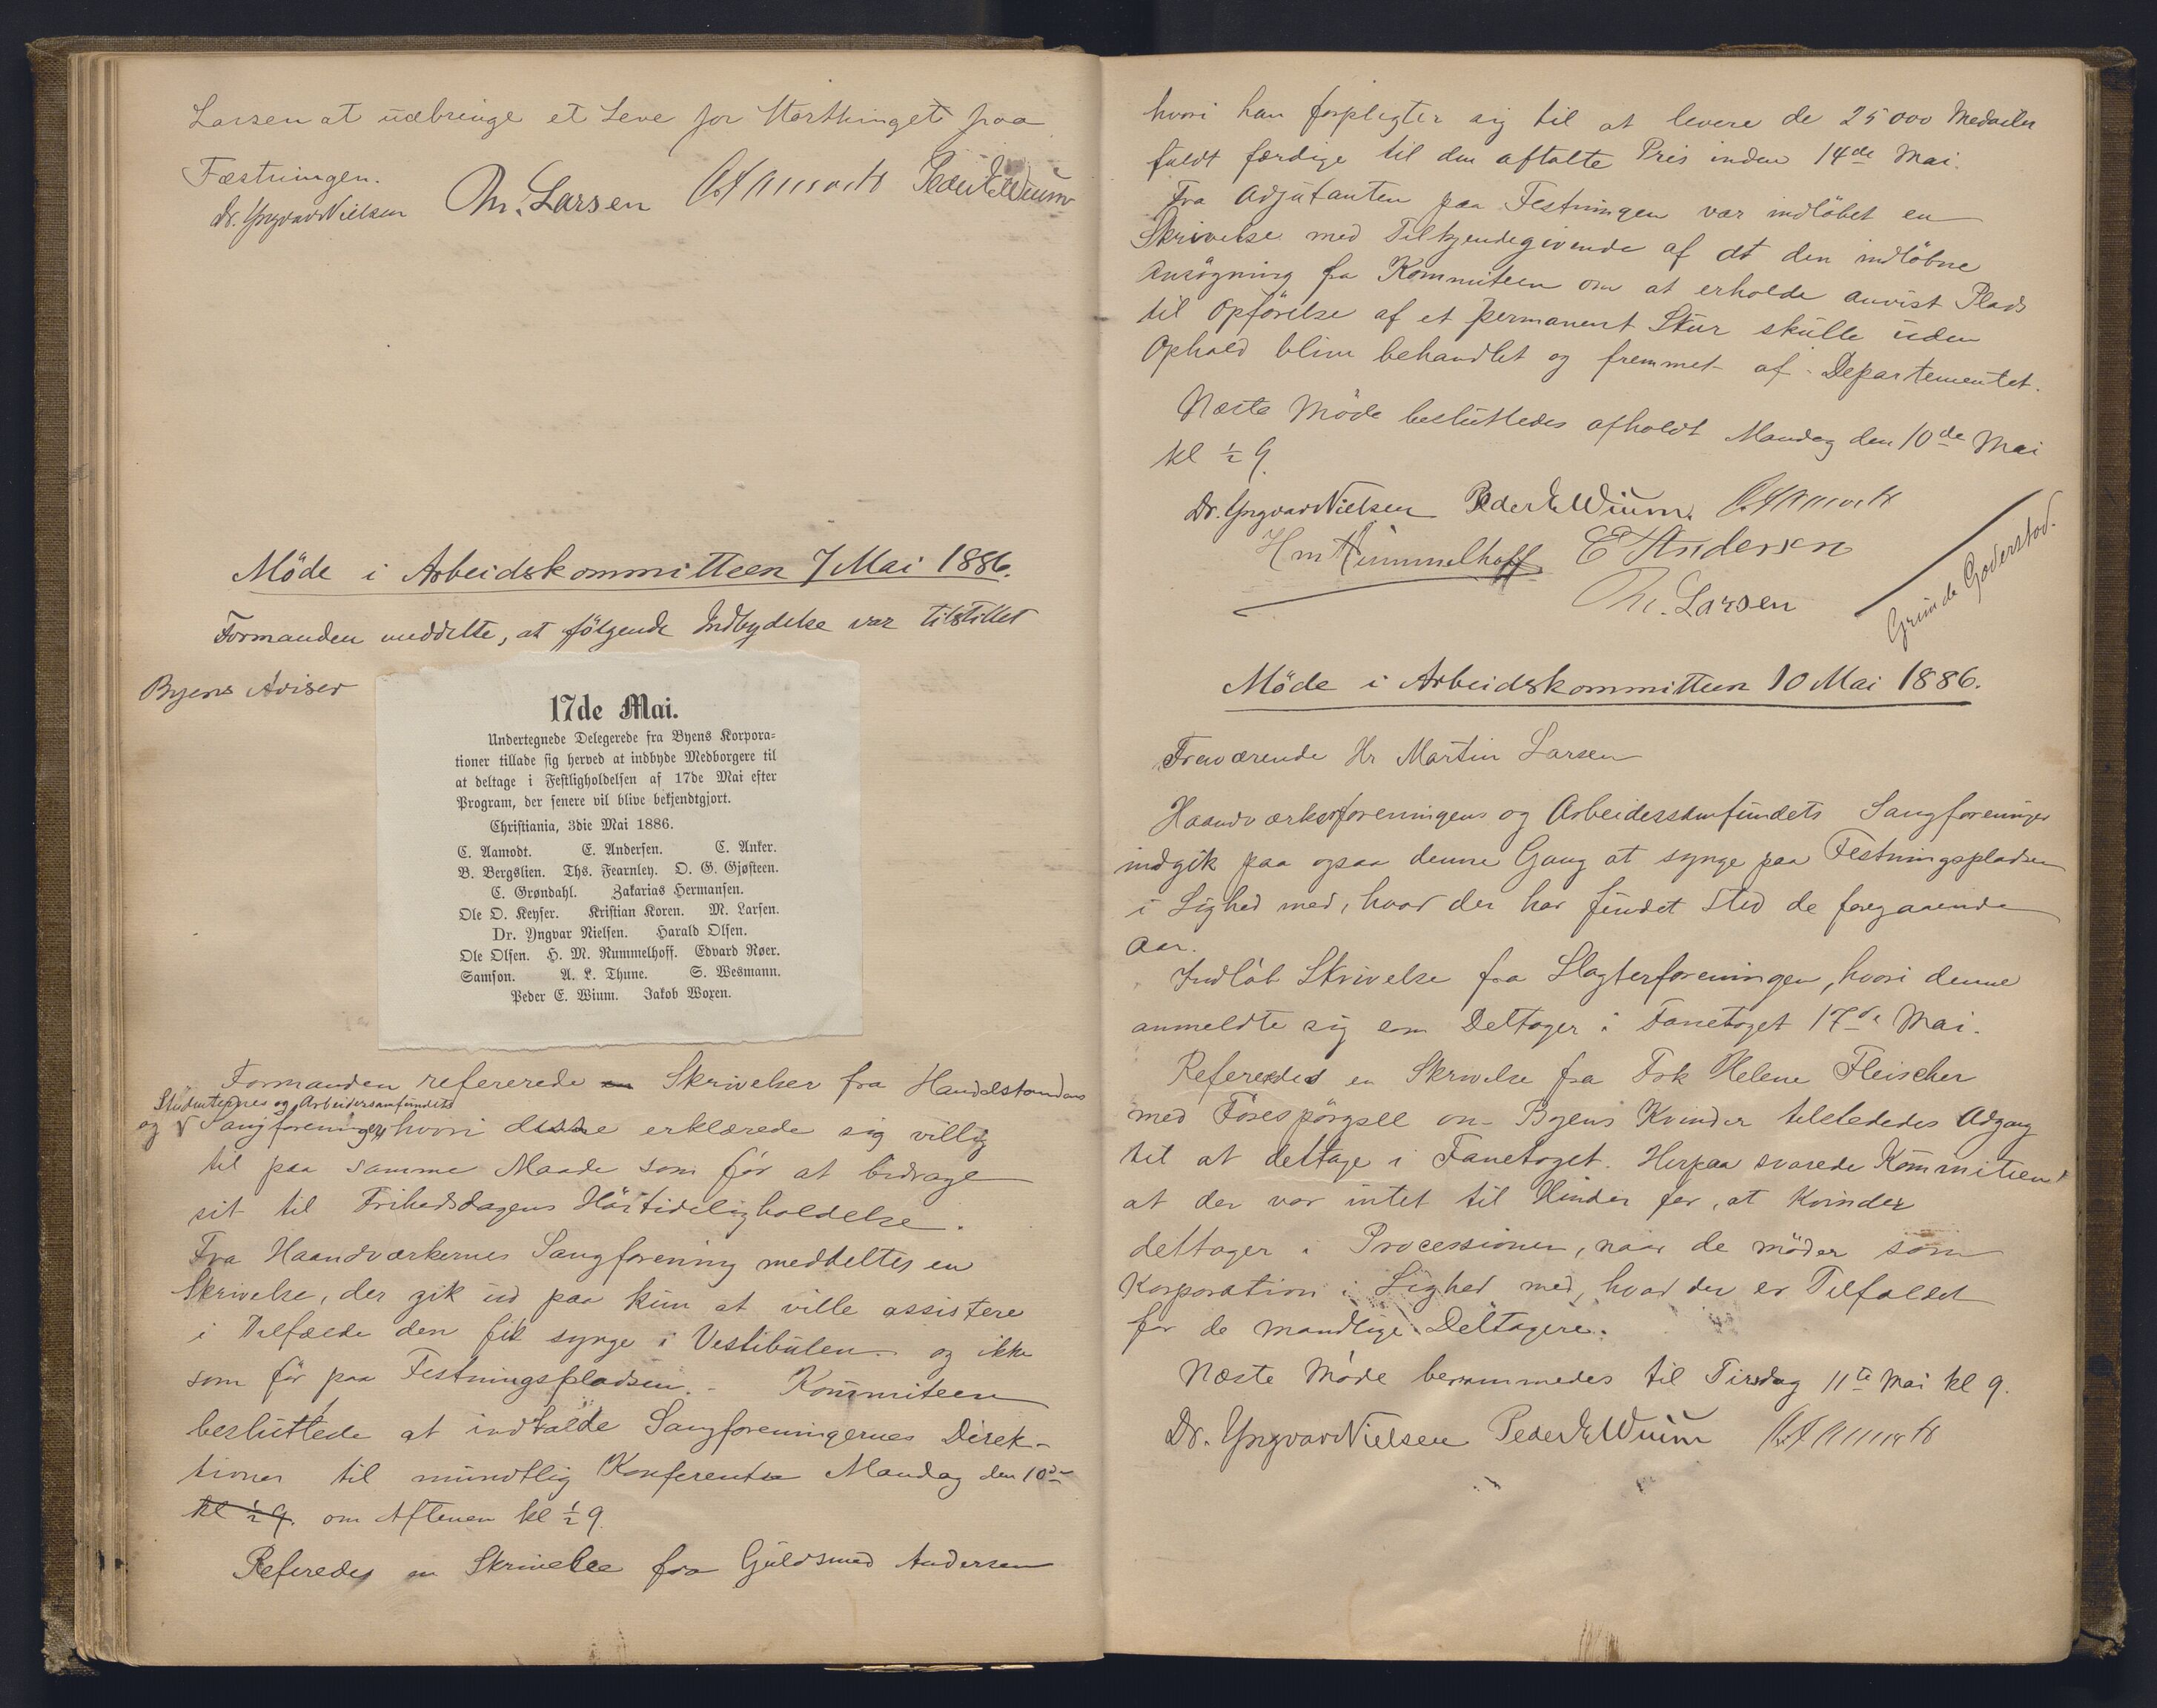 Larsen at udbringe et Leve for Storthinget paa
Fæstningen.
Dr. Yngvar Nielsen M. Larsen C. Aamodt Peder E Wium
Möde i Arbeidskommitteen 7 Mai 1886.
Formanden meddelte, at följende Indbydelse var tilstillet
Byens Aviser
17de Mai.
Undertegnede Delegerede fra Byens Korpora-
tioner tillade sig herved at indbyde Medborgere til
at deltage i Festligholdelsen af 17de Mai efter
Program, der senere vil blive bekjendtgjort.
Christiania, 3die Mai 1886.
C. Aamodt. E. Andersen. C. Anker.
B. Bergslien. Ths. Fearnley. O. G. Gjøsteen.
C. Grøndahl. Zakarias Hermansen.
Ole O. Keyser. Kristian Koren. M. Larsen.
Dr. Yngvar Nielsen. Harald Olsen.
Ole Olsen. H. M. Rummelhoff. Edvard Røer.
Samson. A. L. Thune. S. Wesmann.
Peder E. Wium. Jakob Woxen.
Formanden refererede en Skrivelser fra Handelstandens
Studenternes og Arbeidersamfundets
og Sangforeninger, hvori disse erklærede sig villig
til paa samme Maade som för at bidrage
sit til Frihedsdagens Höitideligholdelse.
Fra Haandværkernes Sangforening meddeltes en
Skrivelse, der gik ud paa kun at ville assistere
i Tilfælde den fik synge i Vestibulen og ikke
som för paa Festningspladsen. - Kommiteen
besluttede at indkalde Sangforeningernes Direk-
tioner til mundtlig Konferentse Mandag den 10de
kl ½ 9. om Aftenen kl ½ 9
Referedes en Skrivelse fra Guldsmed Andersen
hvori han forpligter sig til at levere de 25000 Medailer
fuldt færdige til den aftalte Pris inden 14de Mai.
Fra Adjutanten paa Festningen var indlöbet en
Skrivelse med Tilkjendegivende af at den indlöbne
Ansögning fra Kommiteen om at erholde anvist Plads
til Opförelse af et permanent Skur skulle uden
Ophold blive behandlet og fremmet af Departementet.
Næste Möde besluttedes afholdt Mandag den 10de Mai
kl ½ 9.
Dr. Yngvar Nielsen Peder E Wium. C. Aamodt
H M Rummelhoff E Andersen
M. Larsen
Möde i Arbeidskommitteen 10 Mai 1886.
Fraværende Hr Martin Larsen
Haandværkerforeningens og Arbeidersamfundets Sangforeninger
indgik paa ogsaa denne Gang at synge paa Festningspladsen
i Lighed med, hvad der har fundet Sted de foregaaende
Aar.
Indlöb Skrivelse fra Slagterforeningen, hvori denne
anmeldte sig som Deltager i Fanetoget 17de Mai.
Referedes en Skrivelse fra Frk Helene Fleischer
med Forespörgsel om Byens Kvinder tilstededes Adgang
til at deltage i Fanetoget. Herpaa svarede Kommiteen
at der var intet til Hinder for, at Kvinder
deltager i Processionen, naar de möder som
Korporation i Lighed med, hvad der er Tilfældet
for de mandlige Deltagere.
Næste Möde berammedes til Tirsdag 11te Mai kl 9.
Dr. Yngvar Nielsen Peder E Wium C. Aamodt